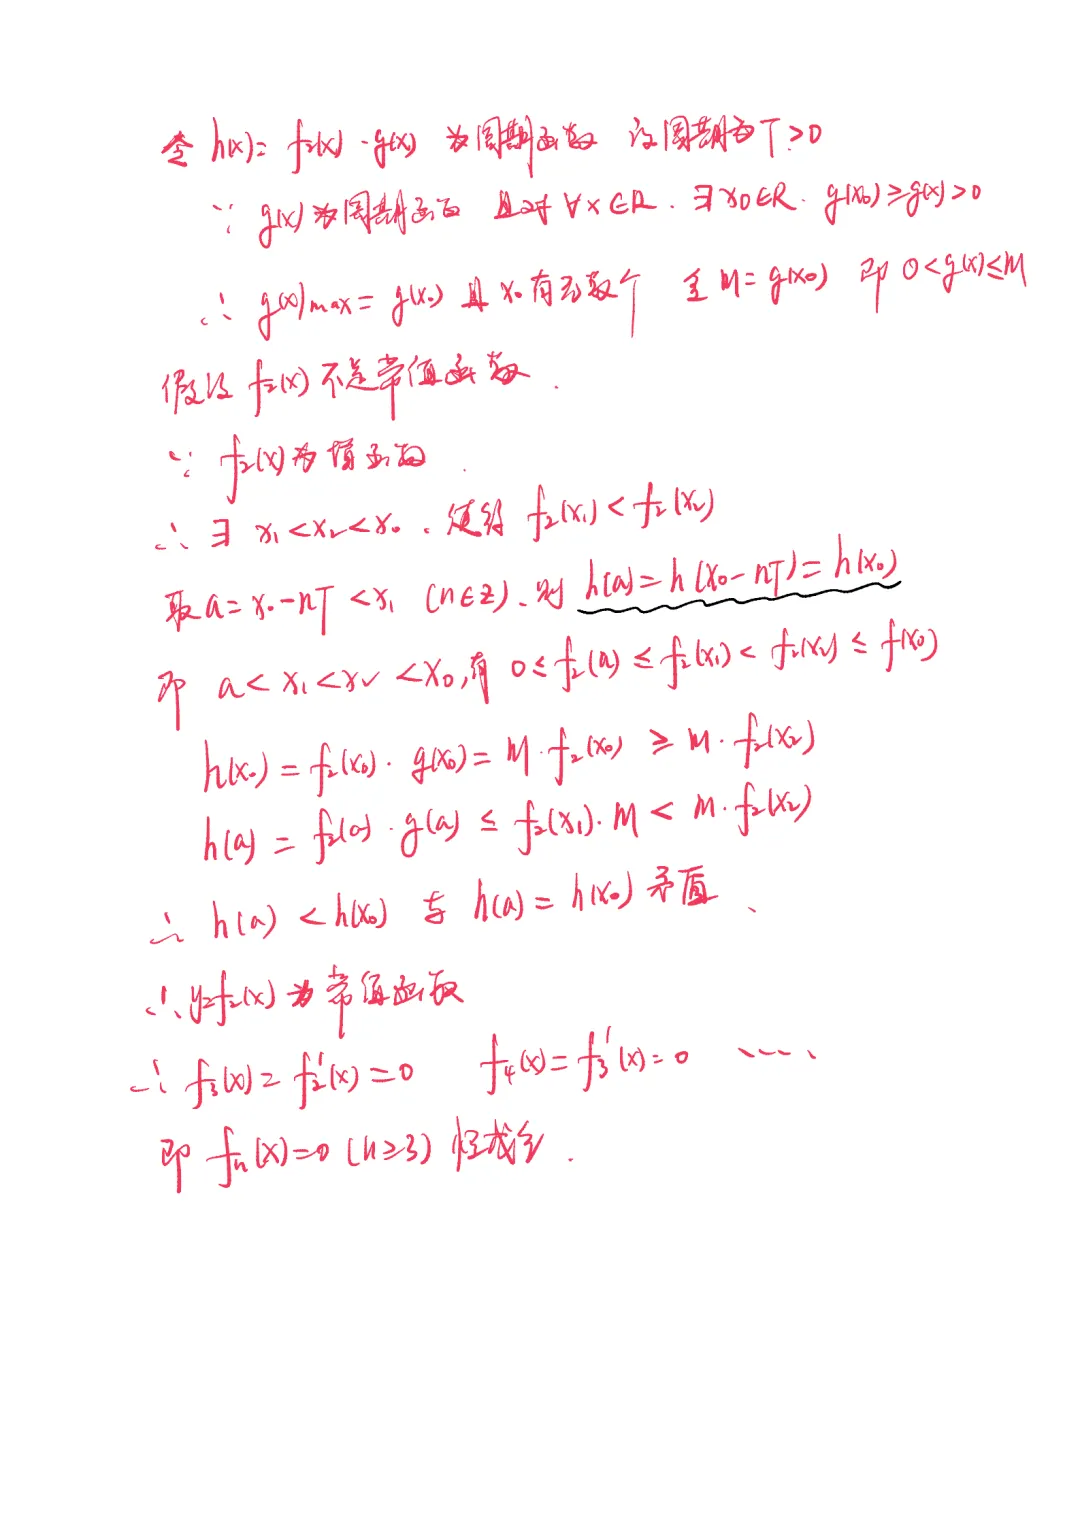 令 h(x)= f₂(x)·g(x) 为周期函数 设周期为T>0
∵ g(x)为周期函数 且对∀x∈R. ∃x₀∈R. g(x₀)≥g(x)>0
∴ g(x)max= g(x₀) 且 x₀有无数个 令 M= g(x₀) 即 0<g(x)≤M
假设 f₂(x) 不是常值函数.
∵ f₂(x)为增函数.
∴ ∃ x₁<x₂<x₀. 使得 f₂(x₁)<f₂(x₂)
取a= x₀-nT <x₁ (n∈Z). 则 h(a)=h(x₀-nT)=h(x₀)
即 a< x₁<x₂ <x₀,有 0≤f₂(a) ≤f₂(x₁)< f₂(x₂) ≤ f(x₀)
h(x₀) = f₂(x₀)· g(x₀)= M·f₂(x₀) ≥ M·f₂(x₂)
h(a) = f₂(a)·g(a) ≤ f₂(x₁)·M < M·f₂(x₂)
∴ h(a) <h(x₀) 与 h(a)= h(x₀) 矛盾、
∴ y=f₂(x) 为常值函数
∴ f₃(x)= f₂'(x)=0 f₄(x)=f₃'(x)=0 ……
即 fₙ(x)=0 (n≥3) 恒成立.